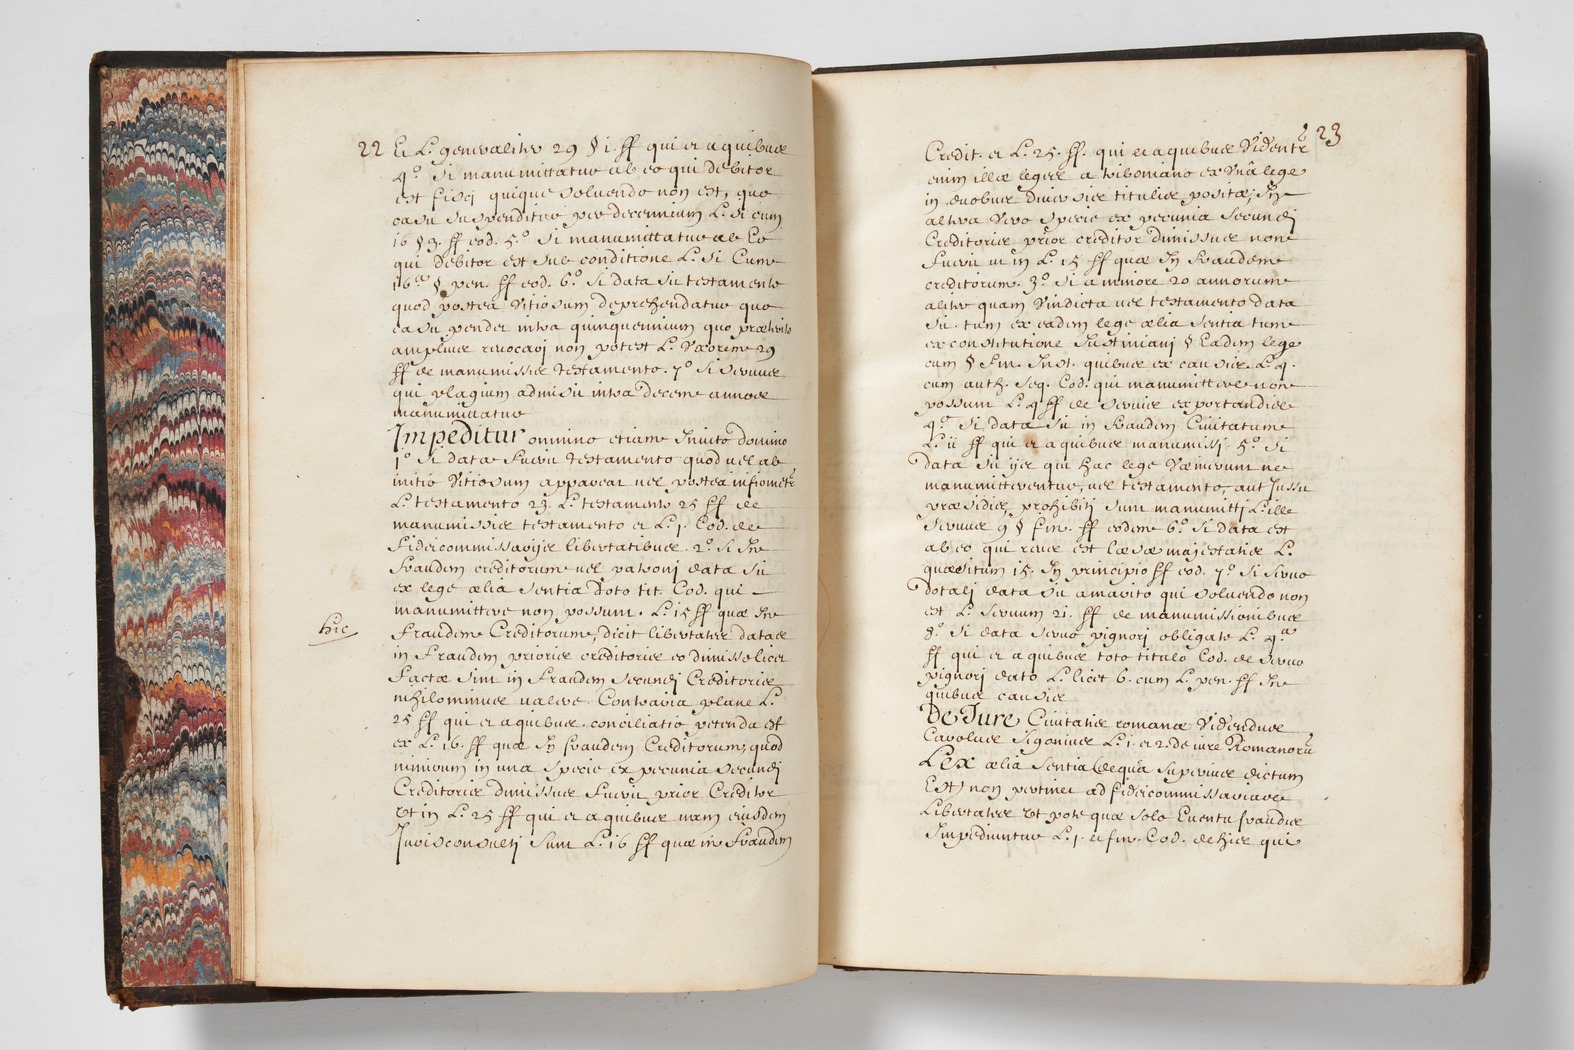 22
Et L. generaliter 29 § i. ff qui et a quibus
4.° Si manumittatur ab eo qui debitor
est fisci quique soluendo non est, quo
casu suspenditur per decennium L. si cum
16 § 3. ff eod. 5.° Si manumittatur ab Eo
qui debitor est sub conditione L. Si Cum
16.a § pen. ff eod. 6.° Si data sit testamento
quod postea Vitiosum deprehendatur quo
casu pendet intra quinquennium quo præterito
amplius reuocari non potest L. Vxorem 29
ff de manumissis testamento. 7.° Si Seruus
qui plagium admisit intra decem annos
manumittatur
Impeditur omnino etiam Inuito domino
1.° Si data fuerit testamento quod uel ab
initio Vitiosum appareat uel postea infirmetr
L. testamento 23. L. testamento 25 ff de
manumissis testamento et L. j. Cod. de
fideicommissarijs libertatibus. 2.° Si In
fraudem creditorum uel patroni data sit
ex lege ælia sentia toto tit. Cod. qui
manumittere non possunt. L. 15 ff quæ In
hic
fraudem Creditorum, dicit libertates datas
in fraudem prioris creditoris eo dimisso licet
factæ sint in fraudem secundi Creditoris
nihilominus ualere. Contraria plane L.
25 ff qui et a quibus. conciliatio petenda est
ex L. 16. ff quæ In fraudem Creditorum, quod
nimirum in una specie ex pecunia secundi
Creditoris dimissus fuerit prior Creditor
Vt in L. 25 ff qui et a quibus nam eiusdem
Jurisconsulti sunt L. 16 ff quæ in fraudem
23
Credit. et L. 25. ff. qui et a quibus Videntr
enim illæ leges a triboniano ex Vnâ lege
in duobus diuersis titulis positæ; In
altera Vero specie ex pecunia secundi
Creditoris prior creditor dimissus non
fuerit ut in L. 15 ff quæ In fraudem
creditorum. 3.° Si a minore 20 annorum
aliter quam Vindicta uel testamento data
sit. tum ex eadem lege ælia sentia tum
ex constitutione Justiniani § Eadem lege
cum § fin. Inst. quibus ex causis. L. 4.
cum auth. seq. Cod. qui manumittere non
possunt L. 4 ff de seruis exportandis
4.° Si data sit in fraudem Ciuitatum
L. ii ff qui et a quibus manumissi. 5.° Si
data sit ijs qui hac lege Vænierunt ne
manumitterentur, uel testamento, aut Jussu
præsidis prohibiti sunt manumitti L. ille
seruus 9 § fin. ff eodem 6.° Si data est
ab eo qui reus est læsæ majestatis L.
quæsitum 15. In principio ff eod. 7.° Si seruo
dotali data sit a marito qui soluendo non
est L. seruum 21. ff de manumissionibus
8.° Si data seruo pignori obligato L. 4.a
ff qui et a quibus toto titulo Cod. de seruo
pignori dato L. licet 6. cum L. pen. ff In
quibus causis
De Jure Ciuitatis romanæ Videndus
Carolus Sigonius L. i. et 2. de iure Romanorũ
Lex ælia sentia (de quâ superius dictum
Est) non pertinet ad fideicommissarias
Libertates Vt pote quæ solo Euentu fraudis
Impediuntur L. j. et fin. Cod. de his qui